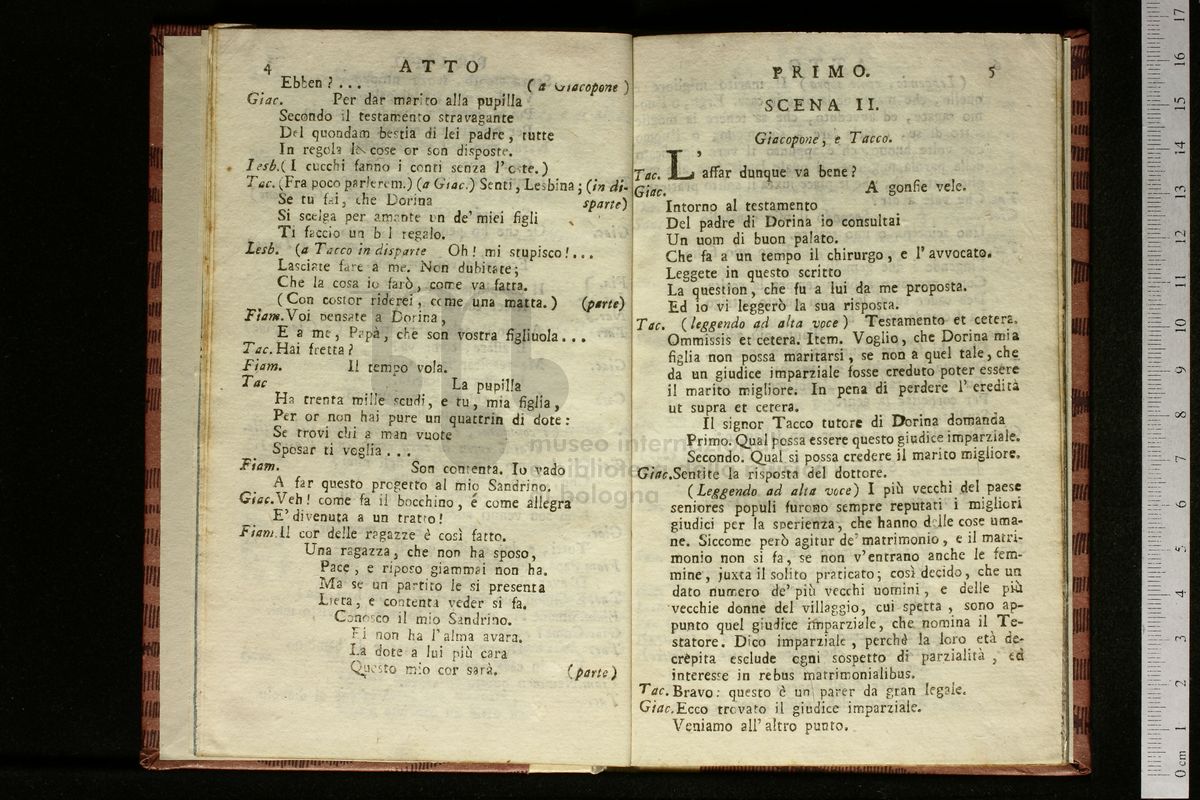 4 ATTO
Ebben?... (a Giacopone)
Giac. Per dar marito alla pupilla
Secondo il testamento stravagante
Del quondam bestia di lei padre, tutte
In regola le cose or son disposte.
Lesb.(I cucchi fanno i conti senza l'oste.)
Tac. (Fra poco parlerem.) (a Giac.) Senti, Lesbina; (in di-
Se tu fai, che Dorina sparte)
Si scelga per amante un de' miei figli
Ti faccio un bel regalo.
Lesb. (a Tacco in disparte Oh! mi stupisco!...
Lasciate fare a me. Non dubitate;
Che la cosa io farò, come va fatta.
(Con costor riderei, come una matta.) (parte)
Fiam. Voi pensate a Dorina,
E a me, Papà, che son vostra figliuola...
Tac. Hai fretta?
Fiam. Il tempo vola.
Tac La pupilla
Ha trenta mille scudi, e tu, mia figlia,
Per or non hai pure un quattrin di dote:
Se trovi chi a man vuote
Sposar ti voglia...
Fiam. Son contenta. Io vado
A far questo progetto al mio Sandrino.
Giac. Veh! come fa il bocchino, é come allegra
E' divenuta a un tratto!
Fiam. Il cor delle ragazze è così fatto.
Una ragazza, che non ha sposo,
Pace, e riposo giammai non ha.
Ma se un partito le si presenta
Lieta, e contenta veder si fa.
Conosco il mio Sandrino.
Ei non ha l'alma avara.
La dote a lui più cara
Questo mio cor sarà. (parte)
PRIMO. 5
SCENA II.
Giacopone, e Tacco.
Tac. L'affar dunque va bene?
Giac. A gonfie vele.
Intorno al testamento
Del padre di Dorina io consultai
Un uom di buon palato.
Che fa a un tempo il chirurgo, e l'avvocato.
Leggete in questo scritto
La question, che fu a lui da me proposta.
Ed io vi leggerò la sua risposta.
Tac. (leggendo ad alta voce) Testamento et cetera.
Ommissis et cetera. Item. Voglio, che Dorina mia
figlia non possa maritarsi, se non a quel tale, che
da un giudice imparziale fosse creduto poter essere
il marito migliore. In pena di perdere l'eredità
ut supra et cetera.
Il signor Tacco tutore di Dorina domanda
Primo. Qual possa essere questo giudice imparziale.
Secondo. Qual si possa credere il marito migliore.
Giac. Sentite la risposta del dottore.
(Leggendo ad alta voce) I più vecchi del paese
seniores populi furono sempre reputati i migliori
giudici per la sperienza, che hanno delle cose uma-
ne. Siccome però agitur de' matrimonio, e il matri-
monio non si fa, se non v'entrano anche le fem-
mine, juxta il solito praticato; così decido, che un
dato numero de' più vecchi uomini, e delle più
vecchie donne del villaggio, cui spetta, sono ap-
punto quel giudice imparziale, che nomina il Te-
statore. Dico imparziale, perchè la loro età de-
crepita esclude ogni sospetto di parzialità, ed
interesse in rebus matrimonialibus.
Tac. Bravo: questo è un parer da gran legale.
Giac. Ecco trovato il giudice imparziale.
Veniamo all'altro punto.
museo intern
bibliote
bologna
0 cm 1 2 3 4 5 6 7 8 9 10 11 12 13 14 15 16 17